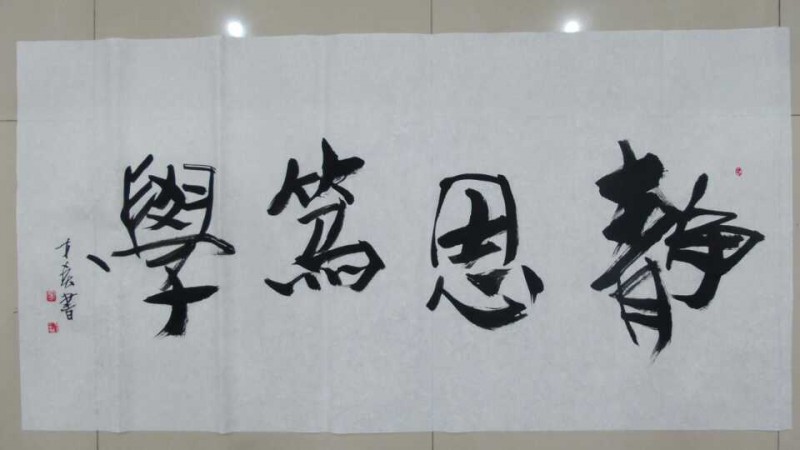 静思篤學
書